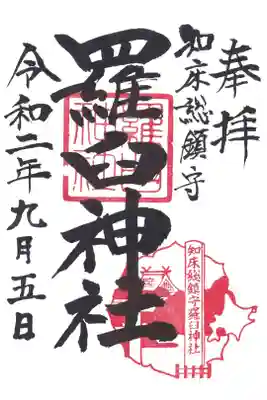 奉拝
知床総鎮守
羅臼神社
令和二年九月五日
羅臼神社
知床総鎮守羅臼神社